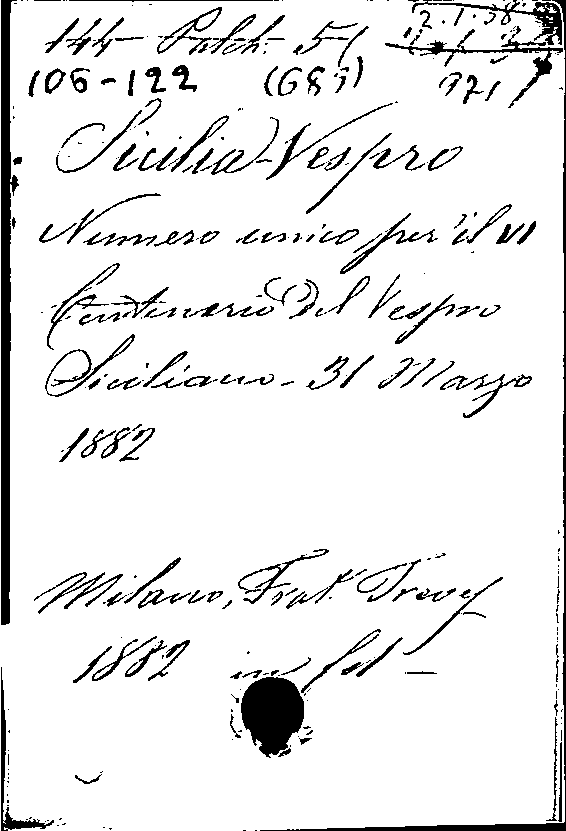 2.1.38
144 Palch. 51
106-122 (689) 9711
Sicilia-Vespro
Numero unico per il VI
Centenario del Vespro
Siciliano - 31 Marzo
1882
Milano, Frat. Treves
1882 in fol -